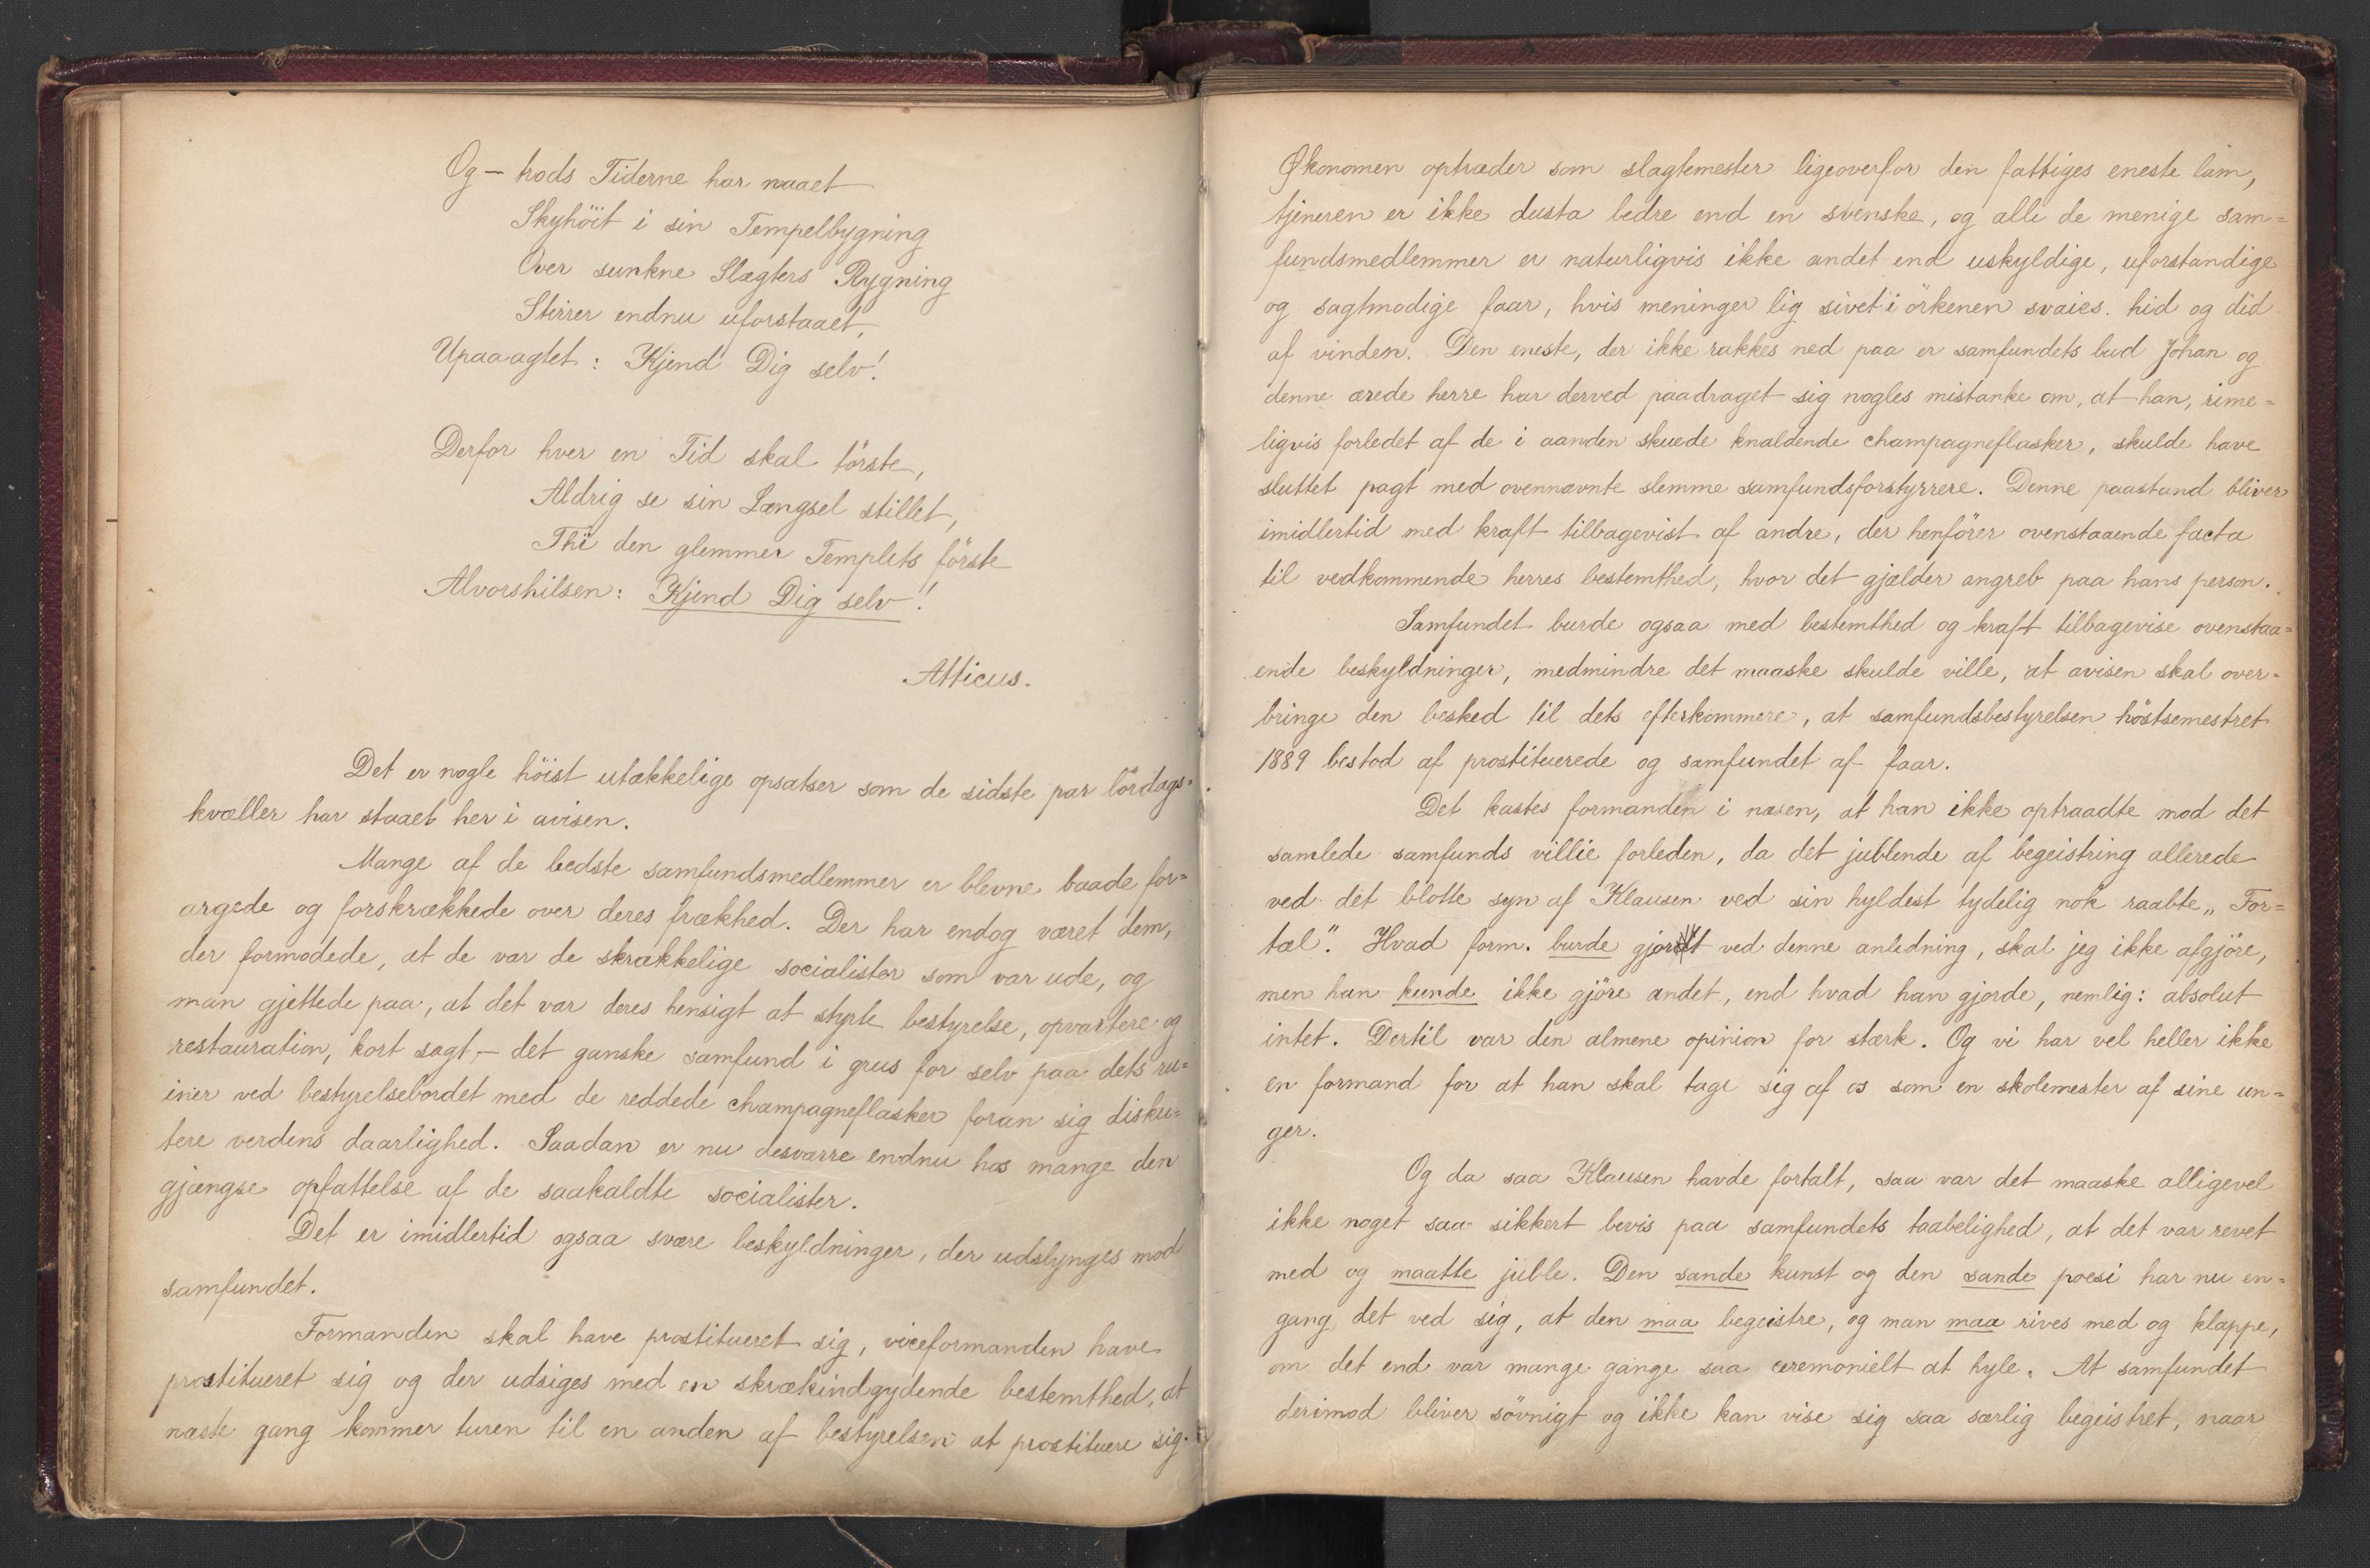 Og – trods Tiderne har naaet
Skyhöit i sin Tempelbygning
Over sunkne Slægters Rygning
Stirrer endnu uforstaaet,
Upaaagtet: Kjend Dig selv!
Derfor hver en Tid skal törste,
Aldrig se sin Længsel stillet,
Thi den glemmer Templets förste
Alvorshilsen: Kjend Dig selv!
Atticus.
Det er nogle höist utækkelige opsatser som de sidste par lördags=
kvæller har staaet her i avisen.
Mange af de bedste samfundsmedlemmer er blevne baade for=
argede og forskrækkede over deres frækhed. Der har endog været dem,
der formodede, at de var de skrækkelige socialister som var ude, og
man gjettede paa, at det var deres hensigt at styrte bestyrelse, opvartere og
restauration, kort sagt, – det ganske samfund i grus for selv paa dets ru=
iner ved bestyrelsebordet med de reddede champagneflasker foran sig disku=
tere verdens daarlighed. Saadan er nu desværre endnu hos mange den
gjængse opfattelse af de saakaldte socialister.
Det er imidlertid ogsaa svære beskyldninger, der udslynges mod
samfundet.
Formanden skal have prostitueret sig, viceformanden have
prostitueret sig og der udsiges med en skrækindgydende bestemthed, at
næste gang kommer turen til en anden af bestyrelsen at prostituere sig.
Økonomen optræder som slagtemester ligeoverfor den fattiges eneste lam,
tjeneren er ikke dusta bedre end en svenske, og alle de menige sam=
fundsmedlemmer er naturligvis ikke andet end uskyldige, uforstandige
og sagtmodige faar, hvis meninger lig sivet i örkenen svaies hid og did
af vinden. Den eneste, der ikke rakkes ned paa er samfundets bud Johan og
denne ærede herre har derved paadraget sig nogles mistanke om, at han, rime=
ligvis forledet af de i aanden skuede knaldende champagneflasker, skulde have
sluttet pagt med ovennævnte slemme samfundsforstyrrere. Denne paastand bliver
imidlertid med kraft tilbagevist af andre, der henförer ovenstaaende facta
til vedkommende herres bestemthed, hvor det gjælder angreb paa hans person.
Samfundet burde ogsaa med bestemthed og kraft tilbagevise ovenstaa=
ende beskyldninger, medmindre det maaske skulde ville, at avisen skal over=
bringe den besked til dets efterkommere, at samfundsbestyrelsen höstsemestret
1889 bestod af prostituerede og samfundet af faar.
Det kastes formanden i næsen, at han ikke optraadte mod det
samlede samfunds villie forleden, da det jublende af begeistring allerede
ved det blotte syn af Klausen ved sin hyldest tydelig nok raabte „For=
tæl”. Hvad form. burde gjort ved denne anledning, skal jeg ikke afgjöre,
men han kunde ikke gjöre andet, end hvad han gjorde, nemlig: absolut
intet. Dertil var den almene opinion for stærk. Og vi har vel heller ikke
en formand for at han skal tage sig af os som en skolemester af sine un=
ger.
Og da saa Klausen havde fortalt, saa var det maaske alligevel
ikke noget saa sikkert bevis paa samfundets taabelighed, at det var revet
med og maatte juble. Den sande kunst og den sande poesi har nu en=
gang det ved sig, at den maa begeistre, og man maa rives med og klappe,
om det end var mange gange saa ceremonielt at hyle. At samfundet
derimod bliver sövnigt og ikke kan vise sig saa særlig begeistret, naar